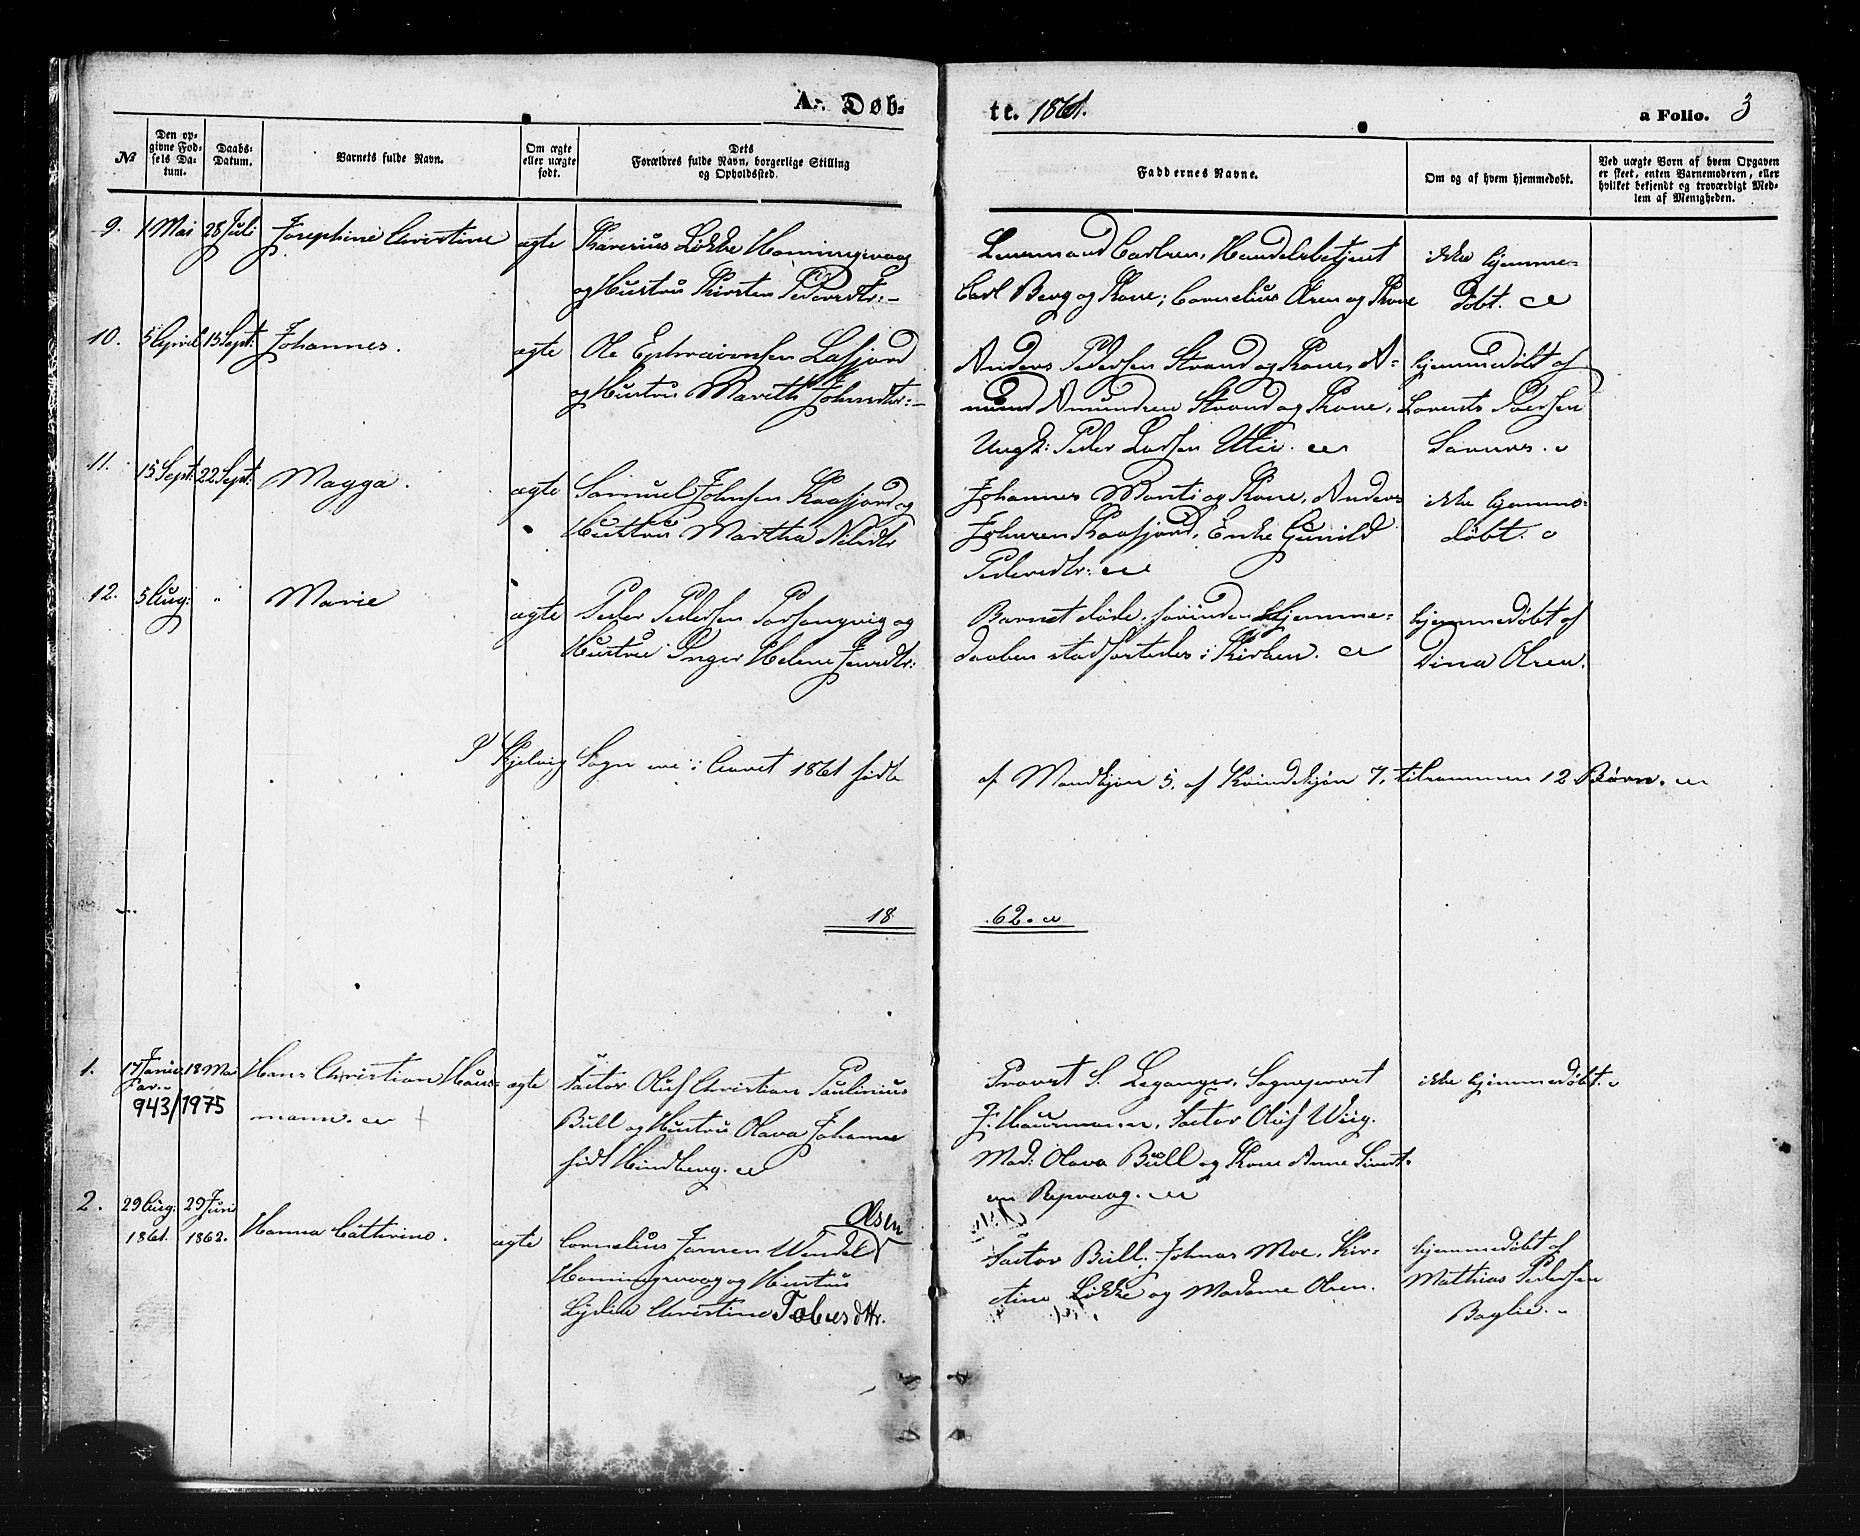 A. Døb-
te. 1861.
a Folio. 3
№
Den op-
givne Fød-
sels Da-
tum.
Daabs-
Datum.
Barnets fulde Navn.
Om ægte
eller uægte
født.
Dets
Forældres fulde Navn, borgerlige Stilling
og Opholdssted.
Faddernes Navne.
Om og af hvem hjemmedøbt.
Ved uægte Børn af hvem Opgaven
er skeet, enten Barnemoderen, eller
hvilket bekjendt og troværdigt Med-
lem af Menigheden.
9. 1 Mai 28 Juli Josephine Christine ægte Løkke Honningsvaag
og Hustru Kirsten Pedersdtr:
Lensmand Carlsen, Handelsbetjent
Carl Berg og Kone; Cornelius Olsen og Kone
ikke hjemme-
døbt.
10. 5 April 15 Sept: Johannes. ægte Ole Ephraimsen Lafjord
og Hustru Marith Johnsdtr:
Anders Pedersen Strand og Kone, A-
mund Amundsen Strand og Kone,
Ungk: Peder Larsen
hjemmedøbt af
Lorents
11. 15 Sept: 22 Sept: Magga. ægte Samuel Johnsen Kaafjord og
Hustru Martha Nilsdtr
Johannes Monti og Kone, Anders
Johnsen Kaafjord, Enke Gunild
Pedersdtr:
ikke hjemme-
døbt.
12. 5 Aug: " Marie ægte Peder Pedersen Porsangvig og
Hustru Inger Helene Jensdtr:
Barnet døde, forinden Hjemme-
daaben stadfæstedes i Kirken.
hjemmedøbt af
Dina Olsen.
I Kjelvig Sogn ere i Aaret 1861 fødte
af Mandkjøn 5, af Kvindekjøn 7, tilsammen 12 Børn.
18
62.
1. 17 Januar 18 Mai Hans Christian Haus- ægte Factor Oluf Christian Paulinius
943/1975
mann. +
Bull og Hustru Olava Johanne
født Hindberg.
Provst S. Leganger, Sogneprest
J. Hausmann, Factor Oluf Wiig,
Mad: Olava Bull og Kone Anne Sivert-
en Repvaag.
ikke hjemmedøbt.
2. 29 Aug: 29 Juni
1861. 1862. Hanna Cathrine. ægte Cornelius Jansen Wendel Olsen
Honningsvaag og Hustru
Lydia Christine Tobiesdtr.
Factor Bull, Johnas Moe, Kir-
stine Løkke og Madame Olsen.
hjemmedøbt af
Mathias Pedersen